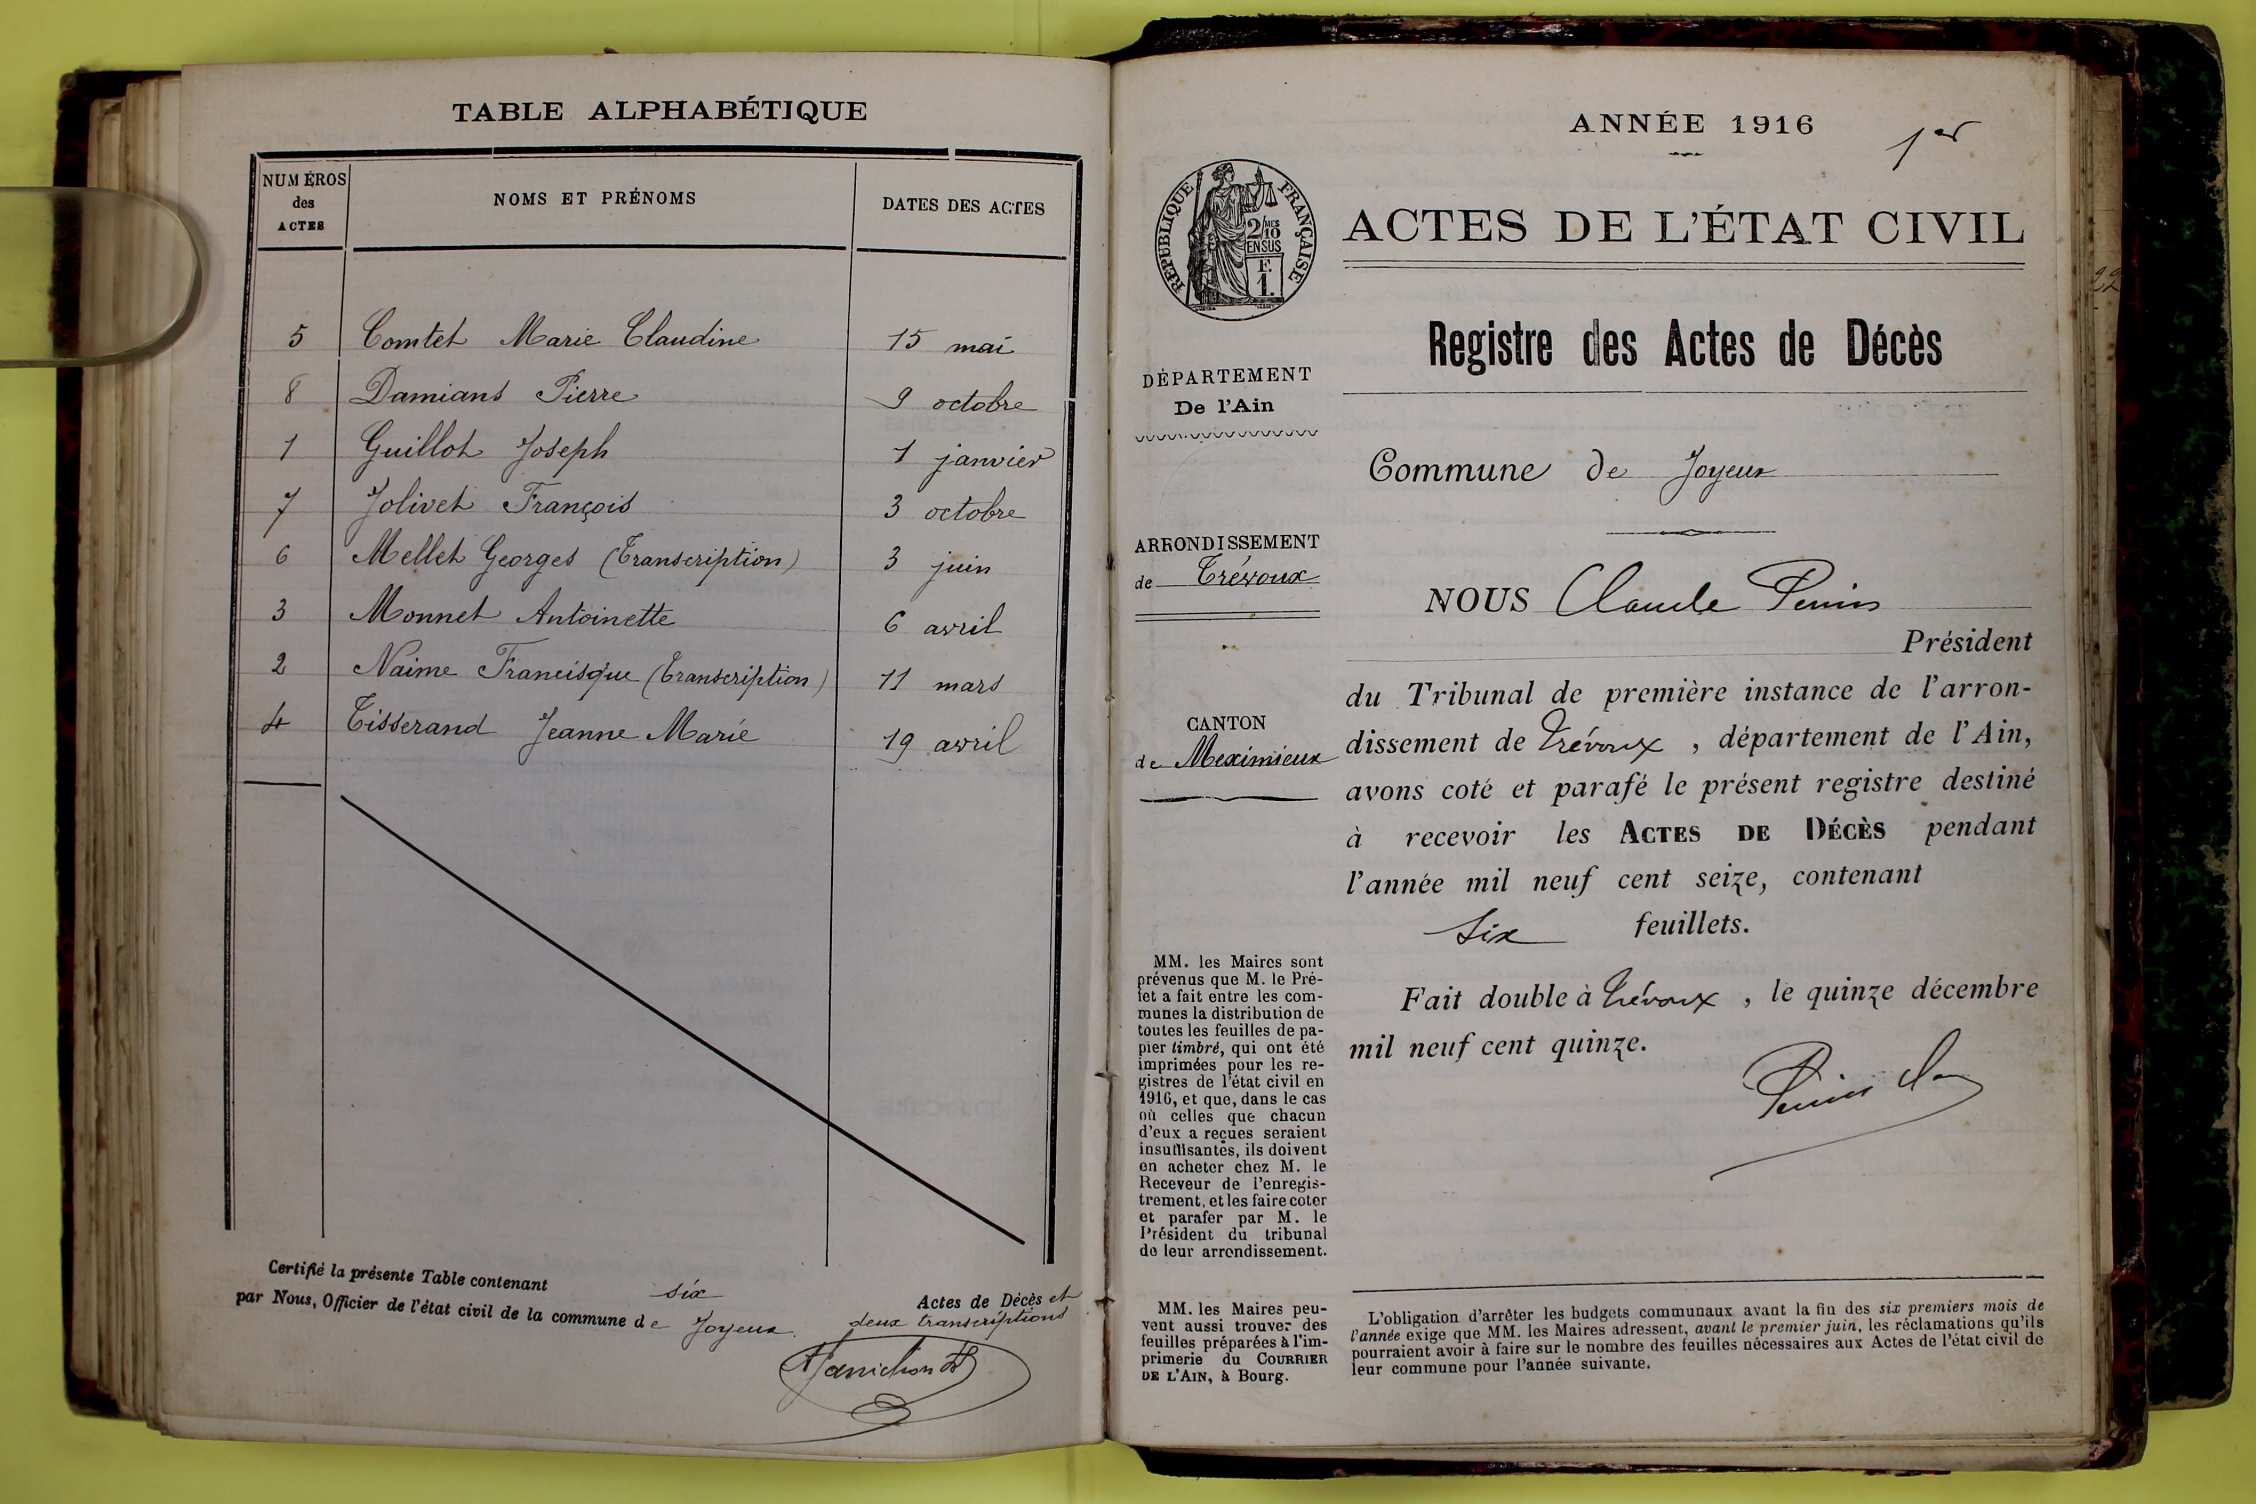 TABLE ALPHABÉTIQUE
NUMÉROS
des
ACTES
NOMS ET PRÉNOMS
DATES DES ACTES
5 Comtet Marie Claudine 15 mai
8 Damians Pierre 9 octobre
1 Guillot Joseph 1 janvier
7 Jolivet François 3 octobre
6 Mellet Georges (Transcription) 3 juin
3 Monnet Antoinette 6 avril
2 Naime Francisque (transcription) 11 mars
4 Tisserand Jeanne Marie 19 avril
Certifié la présente Table contenant six Actes de Décès et deux transcriptions
par Nous, Officier de l'état civil de la commune de Joyeux.
ANNÉE 1916
1er
RÉPUBLIQUE FRANÇAISE
2/10MES
EN SUS
F.
1.
ACTES DE L'ÉTAT CIVIL
Registre des Actes de Décès
DÉPARTEMENT
De l'Ain
ARRONDISSEMENT
de Trévoux
CANTON
de Meximieux
MM. les Maires sont
prévenus que M. le Pré-
fet a fait entre les com-
munes la distribution de
toutes les feuilles de pa-
pier timbré, qui ont été
imprimées pour les re-
gistres de l'état civil en
1916, et que, dans le cas
où celles que chacun
d'eux a reçues seraient
insuffisantes, ils doivent
en acheter chez M. le
Receveur de l'enregis-
trement, et les faire coter
et parafer par M. le
Président du tribunal
de leur arrondissement.
MM. les Maires peu-
vent aussi trouver des
feuilles préparées à l'im-
primerie du COURRIER
DE L'AIN, à Bourg.
Commune de Joyeux
NOUS Claude
Président
du Tribunal de première instance de l'arron-
dissement de Trévoux, département de l'Ain,
avons coté et parafé le présent registre destiné
à recevoir les ACTES DE DÉCÈS pendant
l'année mil neuf cent seize, contenant
six feuillets.
Fait double à Trévoux, le quinze décembre
mil neuf cent quinze.
L'obligation d'arrêter les budgets communaux avant la fin des six premiers mois de
l'année exige que MM. les Maires adressent, avant le premier juin, les réclamations qu'ils
pourraient avoir à faire sur le nombre des feuilles nécessaires aux Actes de l'état civil de
leur commune pour l'année suivante.